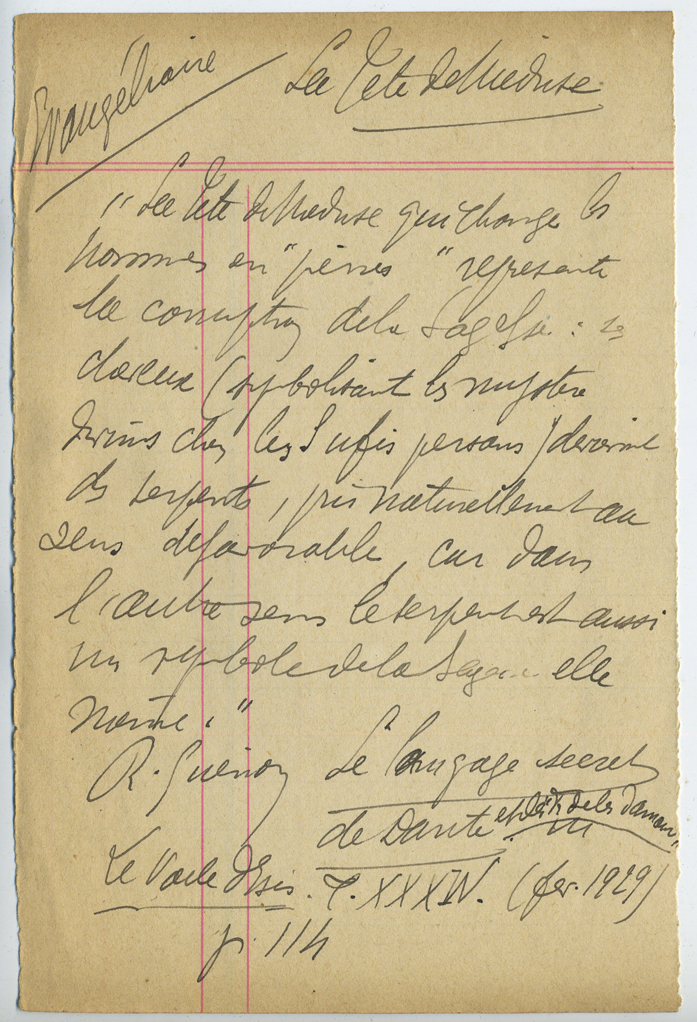 Evangéliaire
La Tête de Méduse
"La Tête de Méduse qui change les
hommes en "pierres" représente
la corruption de la Sagesse : ses
cheveux (symbolisant les mystères
divins chez les Sufis persans) deviennent
des serpents, pris naturellement au
sens défavorable, car dans
l'autre sens le serpent est aussi
un symbole de la Sagesse elle
même."
R. Guénon Le langage secret
de Dante et des "Fidèles d'amour"
Le Voile d'Isis. T. XXXIV. (fev. 1929)
p. 114